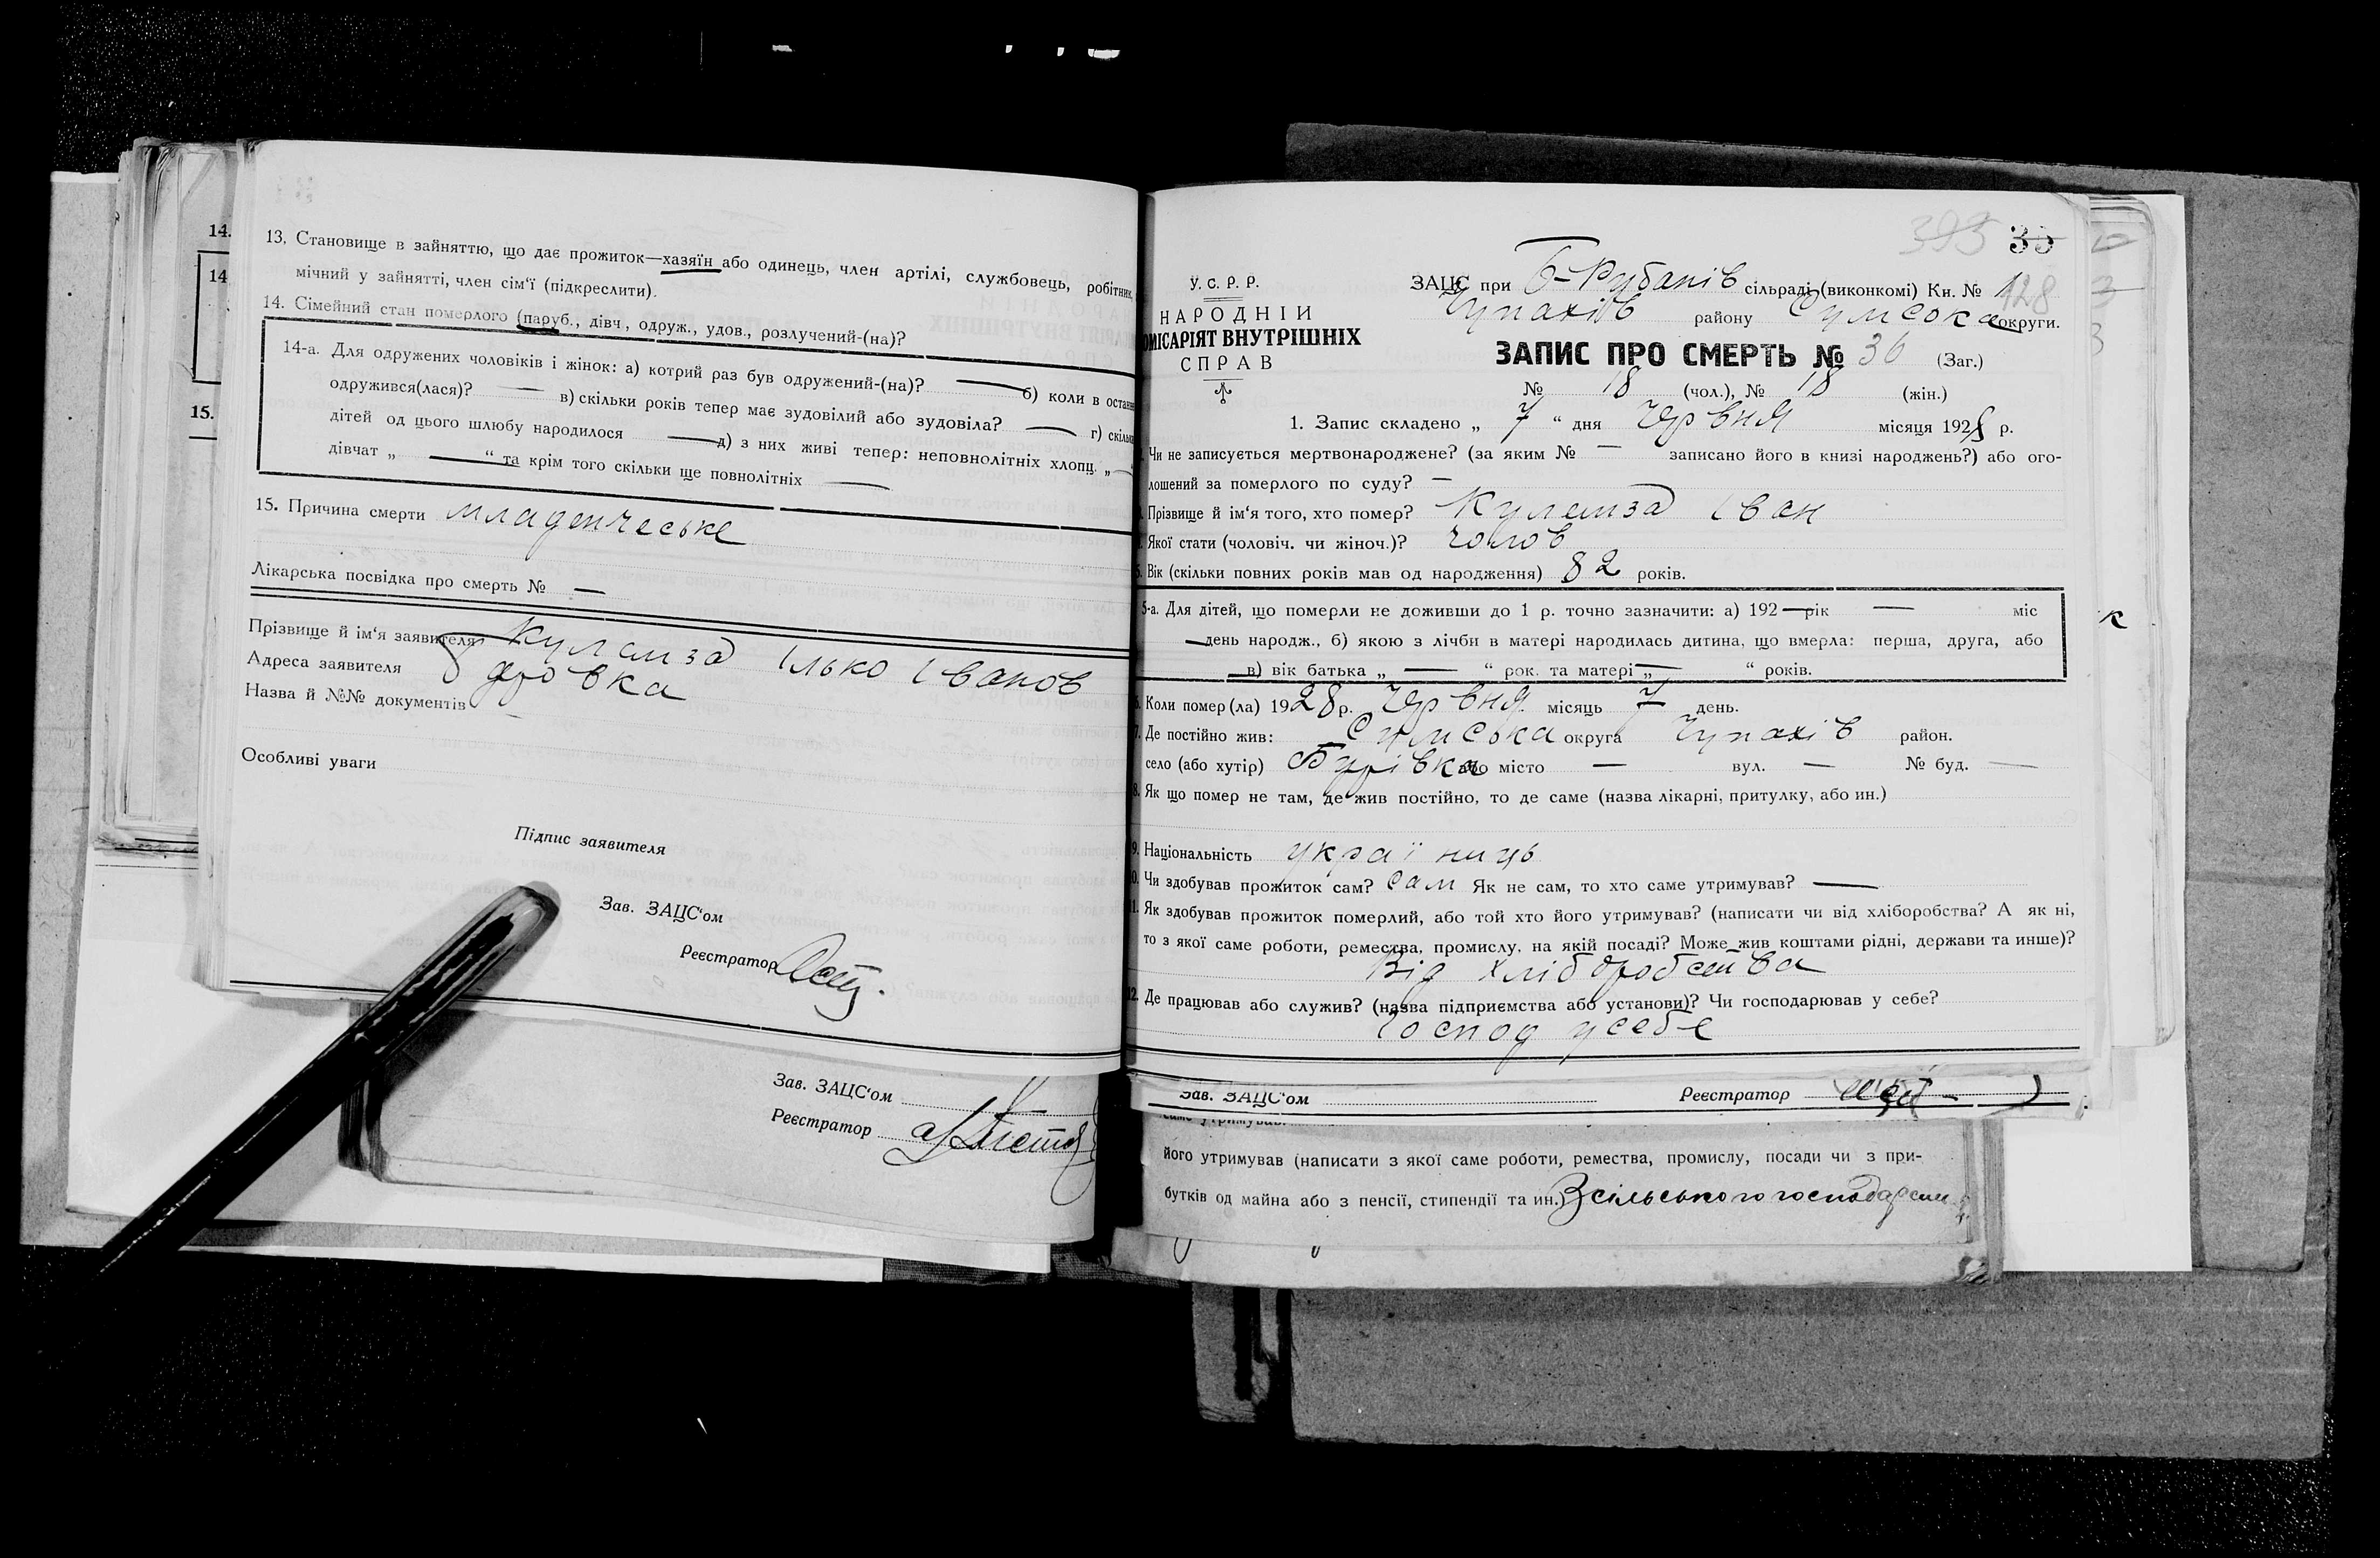 14.
14
15.
13. Становище в зайняттю, що дає прожиток—хазяїн або одинець, член артілі, службовець, робітник,
мічний у зайнятті, член сім'ї (підкреслити).
14. Сімейний стан померлого (паруб., дівч, одруж., удов., розлучений-(на)?
14-а. Для одружених чоловіків і жінок: а) котрий раз був одружений-(на)? — б) коли в остан
одружився(лася)? — в) скільки років тепер має зудовілий або зудовіла? — г) скіль
дітей од цього шлюбу народилося — д) з них живі тепер: неповнолітніх хлопц. „ —
дівчат „ — “ та крім того скільки ще повнолітніх —
15. Причина смерти младенчеське
Лікарська посвідка про смерть № —
Прізвище й ім'я заявителя Кулємза Ілько Іванов
Адреса заявителя Буровка
Назва й №№ документів —
Особливі уваги
Підпис заявителя
Зав. ЗАЦС'ом
Реєстратор
Зав. ЗАЦС'ом
Реєстратор
393 35
У. С. Р. Р.
НАРОДНІЙ
ОМІСАРІЯТ ВНУТРІШНІХ
СПРАВ
ЗАЦС при Б-Рубанів сільраді (виконкомі) Кн. № 1
128
Чупахів району Сумсока округи.
ЗАПИС ПРО СМЕРТЬ № 36 (Заг.)
№ 18 (чол.), № 18 (жін.)
1. Запис складено „ 7 “ дня Червня місяця 1928 р.
Чи не записується мертвонароджене? (за яким № — записано його в книзі народжень?) або ого-
лошений за померлого по суду? —
Прізвище й ім'я того, хто помер? Кулємза Іван
Якої стати (чоловіч. чи жіноч.)? Чолов
5. Вік (скільки повних років мав од народження) 82 років.
5-а. Для дітей, що померли не доживши до 1 р. точно зазначити: а) 192 — рік — міс
— день народж., б) якою з лічби в матері народилась дитина, що вмерла: перша, друга, або
— в) вік батька „ — “ рок. та матері „ — “ років.
6. Коли помер(ла) 1928 р. Червня місяць 7 день.
7. Де постійно жив: Сумська округа Чупахів район.
село (або хутір) Бурівка або місто — вул. — № буд. —
8. Як що помер не там, де жив постійно, то де саме (назва лікарні, притулку, або ин.)
9. Національність україниць
10. Чи здобував прожиток сам? Сам Як не сам, то хто саме утримував? —
11. Як здобував прожиток померлий, або той хто його утримував? (написати чи від хліборобства? А як ні,
то з якої саме роботи, ремества, промислу, на якій посаді? Може жив коштами рідні, держави та инше)?
Від хліборобства
12. Де працював або служив? (назва підприємства або установи)? Чи господарював у себе?
Господ усебе
Зав. ЗАЦС'ом Реєстратор
саме утримував.
його утримував (написати з якої саме роботи, ремества, промислу, посади чи з при-
бутків од майна або з пенсії, стипендії та ин.) Зсільського господарств
к